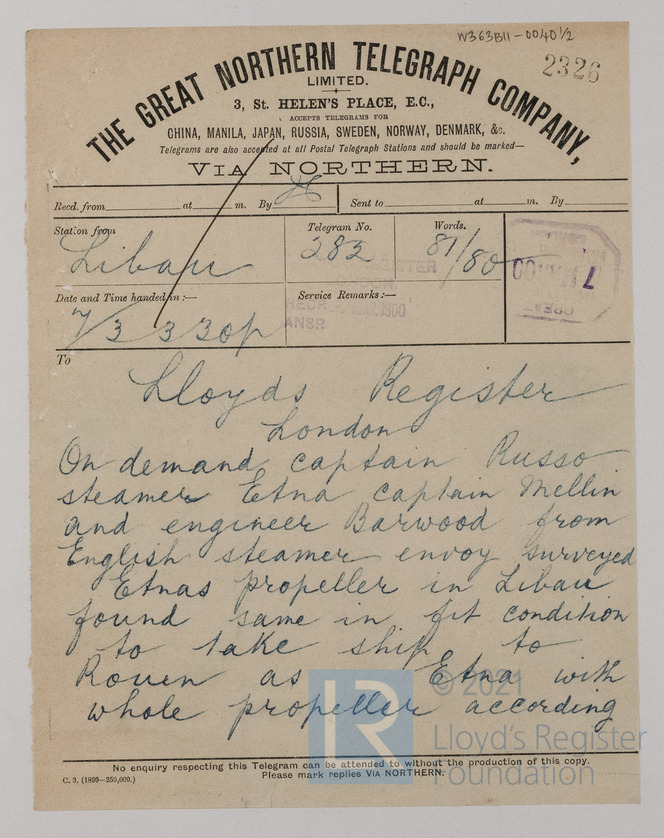 W363B11-0040 1/2
2326
THE GREAT NORTHERN TELEGRAPH COMPANY,
LIMITED.
3, St. HELEN'S PLACE, E.C.,
ACCEPTS TELEGRAMS FOR
CHINA, MANILA, JAPAN, RUSSIA, SWEDEN, NORWAY, DENMARK, &c.
Telegrams are also accepted at all Postal Telegraph Stations and should be marked—
VIA NORTHERN.
Recd. from at m. By Sent to at m. By
Station from Telegram No. Words.
Libau 282 81/80
Date and Time handed in:— Service Remarks:—
7/3 3 30p
To
Lloyds Register
London
On demand captain Russo
steamer Etna captain Mellin
and engineer Barwood from
English steamer envoy surveyed
Etnas propeller in Libau
found same in fit condition
to take ship to
Rouen as Etna with
whole propeller according
No enquiry respecting this Telegram can be attended to without the production of this copy.
Please mark replies VIA NORTHERN.
C. 3. (1899—250,000.)
© 2021
LR
Lloyd's Register
Foundation